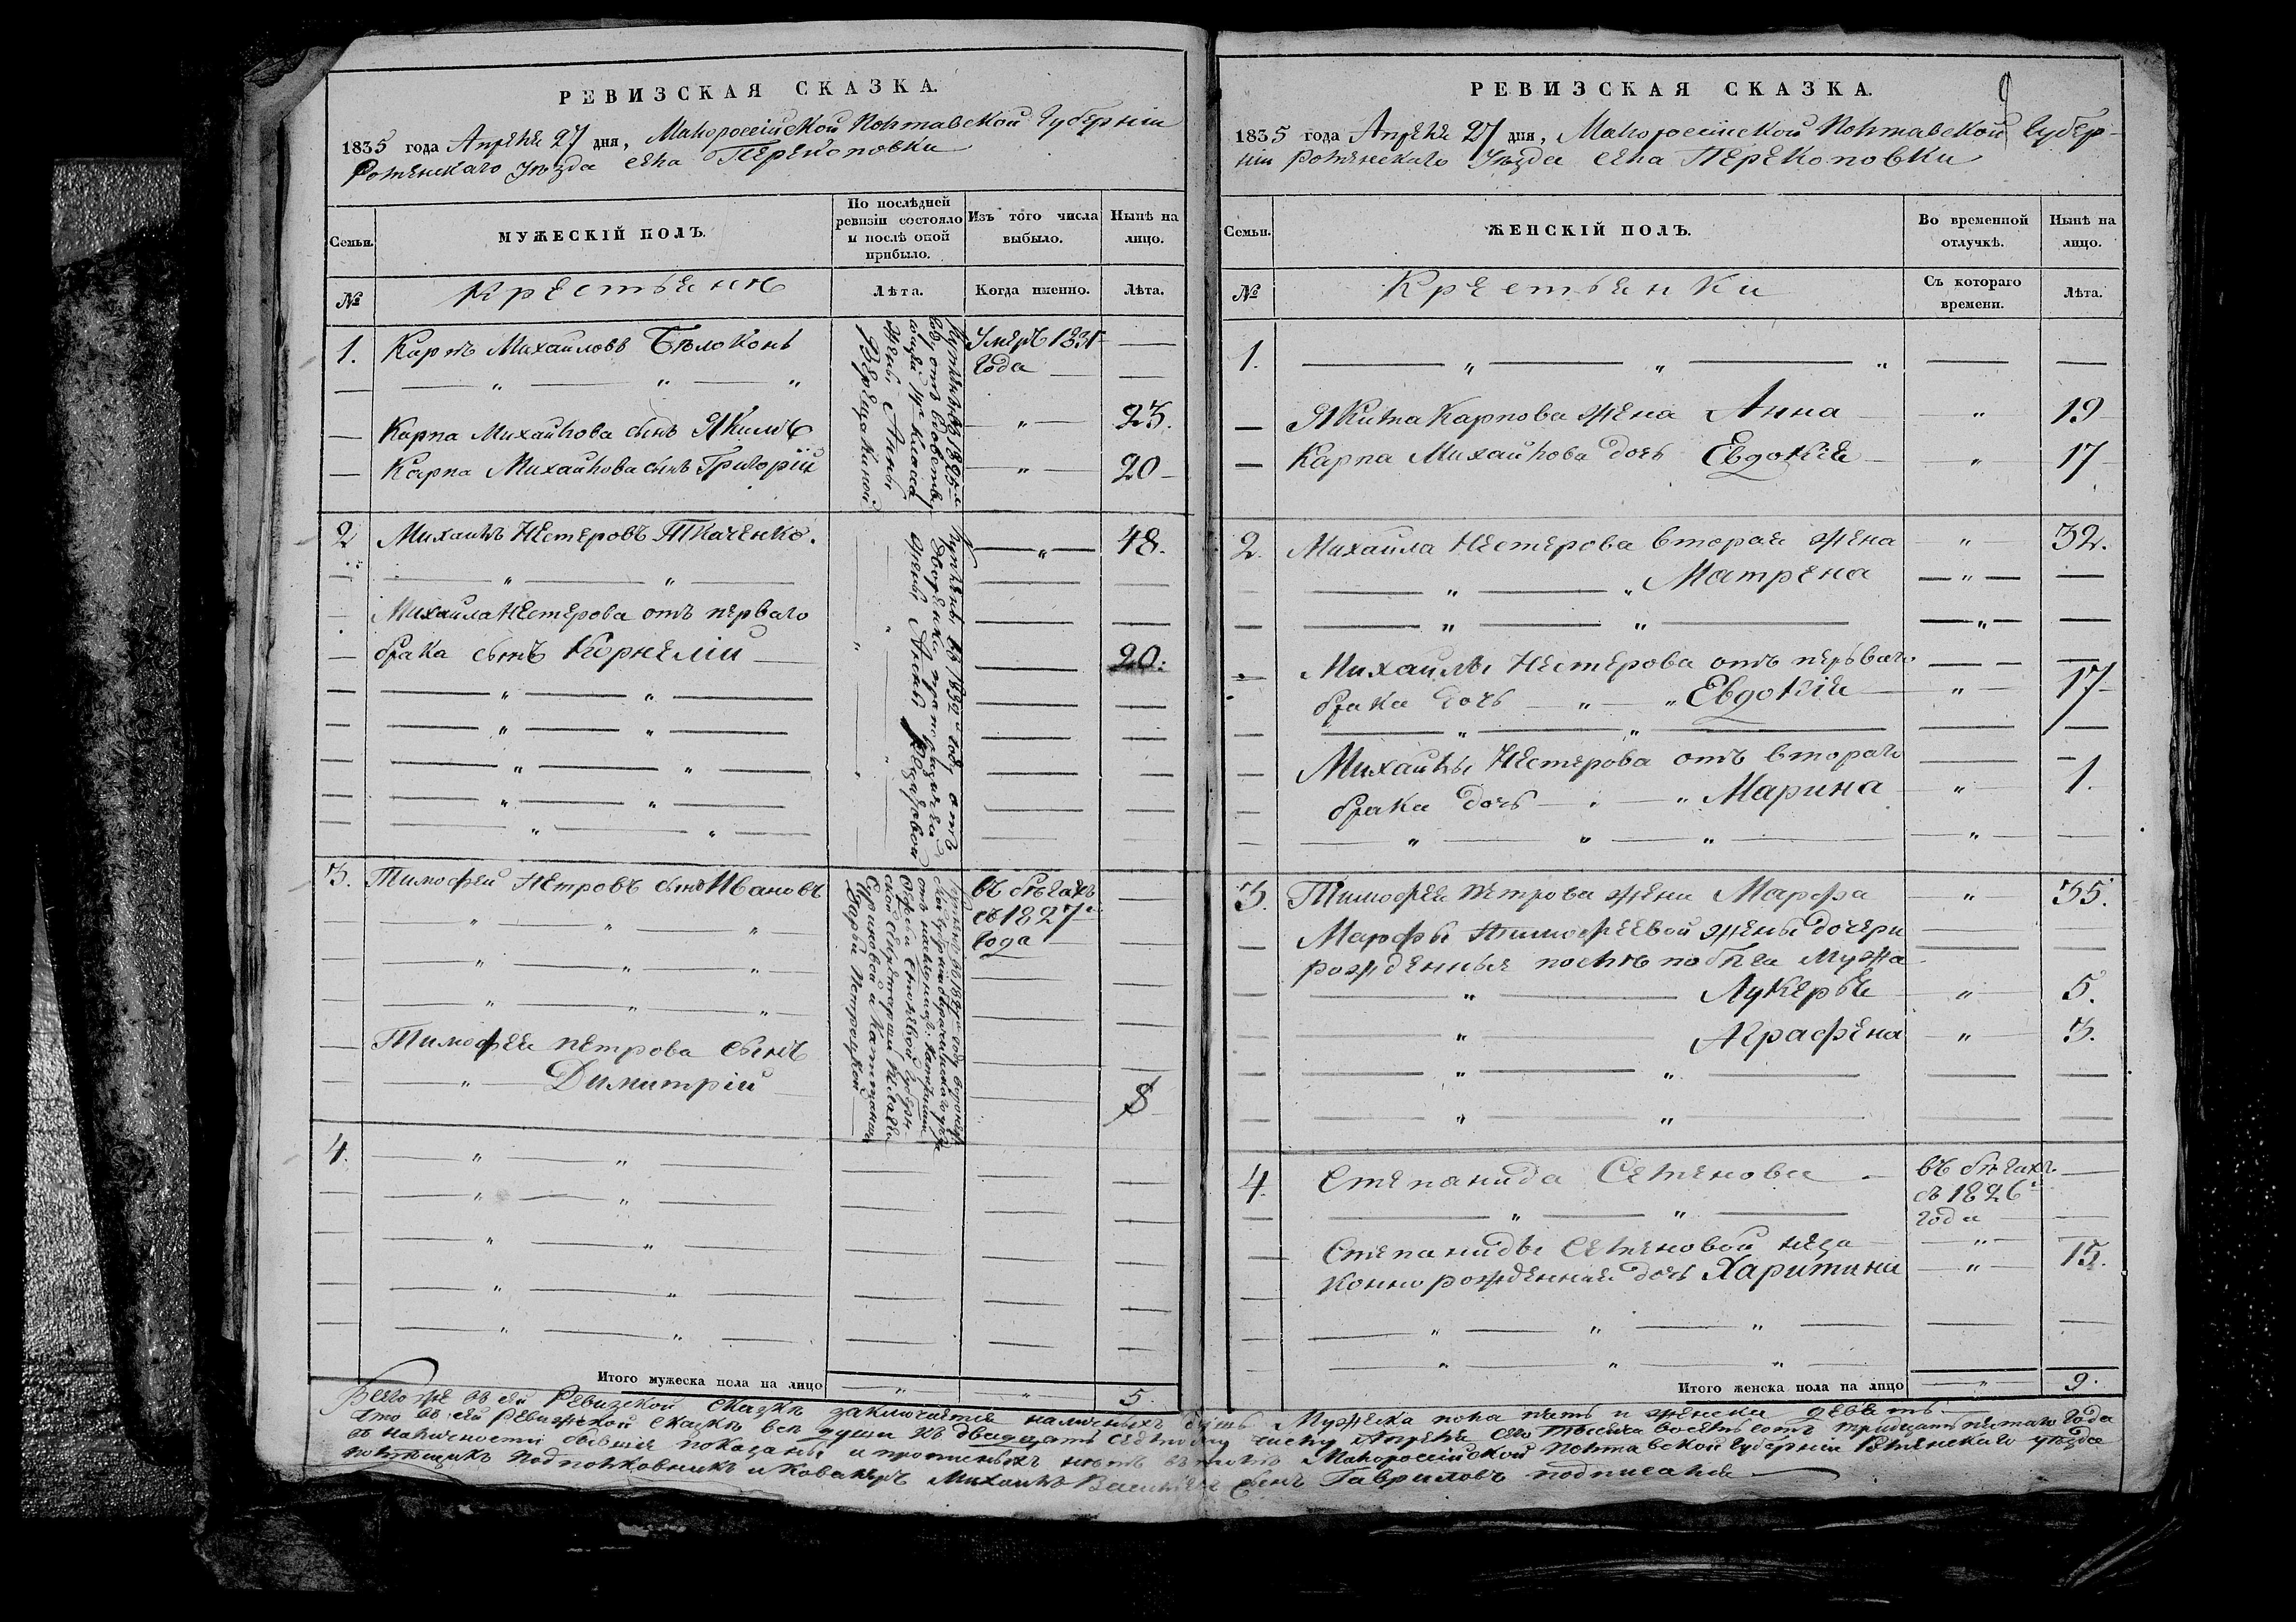 РЕВИЗСКАЯ СКАЗКА.
1835 года Апреля 27 дня, Малороссійской Полтавской Губерніи
Роменскаго Уѣзда села Перекоповки
Семьи.
МУЖЕСКІЙ ПОЛЪ.
По послѣдней ревизіи состояло и послѣ оной прибыло.
Изъ того числа выбыло.
Нынѣ на лицо.
№
Крестьяне
Лѣта.
Когда именно.
Лѣта.
1. Карпъ Михайловъ Бѣлоконь Умеръ 1831
года
Карпа Михайлова сынъ Якимъ 23.
Карпа Михайлова сынъ Григорій 20
Купленъ въ 1825 м
году отъ
Класса
жены Анны
Верещакиной
2 Михаилъ Нестеровъ Ткаченко. 48.
Михаила Нестерова отъ перваго
брака сынъ Корнелій 20.
Купленъ въ 1832 м году отъ
жены Анны
3. Тимофей Петровъ сынъ Ивановъ въ бѣгахъ
съ 1827 г
года
Тимофея Петрова сынъ
Димитрій 8
Дарьи Петровской
4.
Итого мужеска пола на лицо 5.
РЕВИЗСКАЯ СКАЗКА.
9
1835 года Апреля 27 дня, Малороссійской Полтавской Губер-
ніи Роменскаго Уѣзда села Перекоповки
Семьи.
ЖЕНСКІЙ ПОЛЪ.
Во временной отлучкѣ.
Нынѣ на лицо.
№
Крестьянки
Съ котораго времени.
Лѣта.
1.
Якима Карпова жена Анна 19
Карпа Михайлова дочь Евдокія 17
2. Михаила Нестерова вторая жена 32.
Матрена
Михаилы Нестерова отъ перваго
брака дочь Евдокія 17
Михайлы Нестерова отъ втораго
брака дочь Марина 1.
3. Тимофея Петрова жена Марфа 35.
Марфы Тимофеевой жены дочери
рожденныя послѣ побѣга мужа
Лукерья 5.
Аграфена 3.
4. Степанида Семенова въ бѣгахъ
съ 1826 г
года
Степаниды Семеновой неза
конно рожденная дочь Харитина 15.
Итого женска пола на лицо 9.
Всего же въ сей Ревизской сказкѣ заключается наличныхъ душъ мужеска пола пять и женска девять
Что въ сей Ревизской сказкѣ все души къ двадцать седьмому числу Апреля сего тысяча восемь сотъ тридцать пятаго года
въ наличности бывшія показаны и прописныхъ нетъ въ томъ Малороссійской Полтавской Губерніи Роменскаго уѣзда
помѣщикъ Подполковникъ и Кавалеръ Михаилъ Васильевъ сынъ Гавриловъ подписался